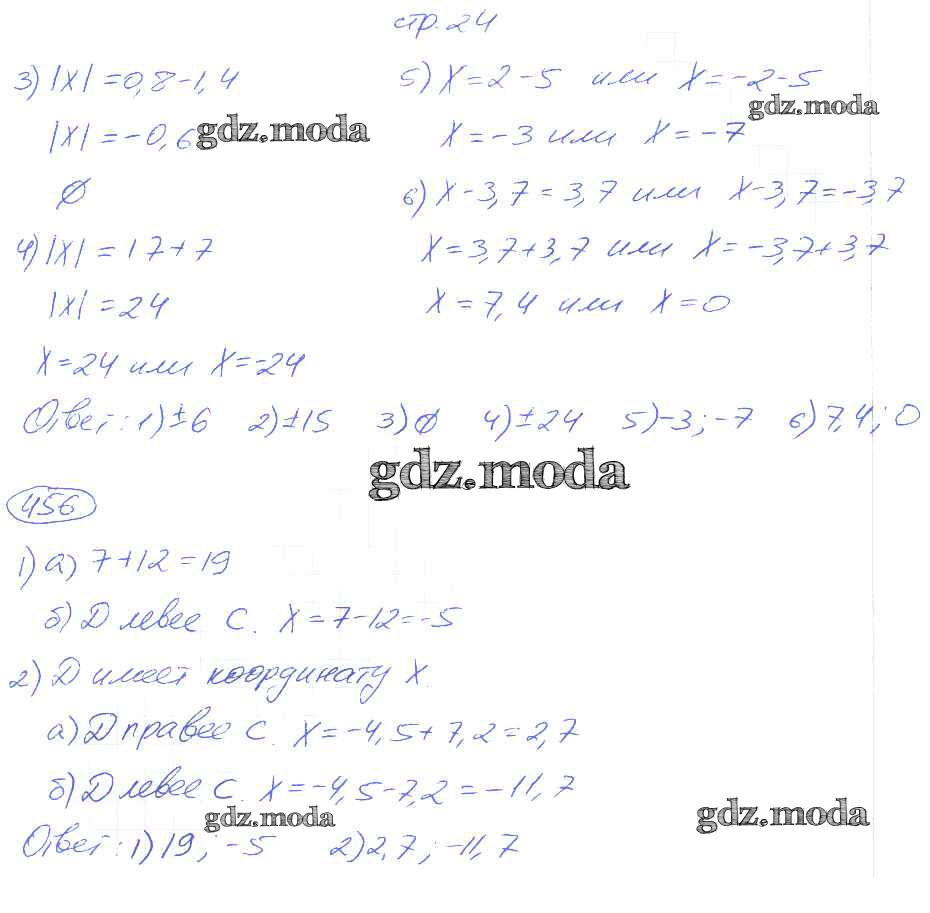 стр. 24
3) |x| = 0,8 - 1,4
|x| = -0,6
∅
4) |x| = 17 + 7
|x| = 24
x = 24 или x = -24
5) x = 2 - 5 или x = -2 - 5
x = -3 или x = -7
6) x - 3,7 = 3,7 или x - 3,7 = -3,7
x = 3,7 + 3,7 или x = -3,7 + 3,7
x = 7,4 или x = 0
Ответ: 1) ±6 2) ±15 3) ∅ 4) ±24 5) -3; -7 6) 7,4; 0
456
1) а) 7 + 12 = 19
б) D левее C. x = 7 - 12 = -5
2) D имеет координату x.
а) D правее C. x = -4,5 + 7,2 = 2,7
б) D левее C. x = -4,5 - 7,2 = -11,7
Ответ: 1) 19; -5 2) 2,7; -11,7
gdz.moda
gdz.moda
gdz.moda
gdz.moda
gdz.moda